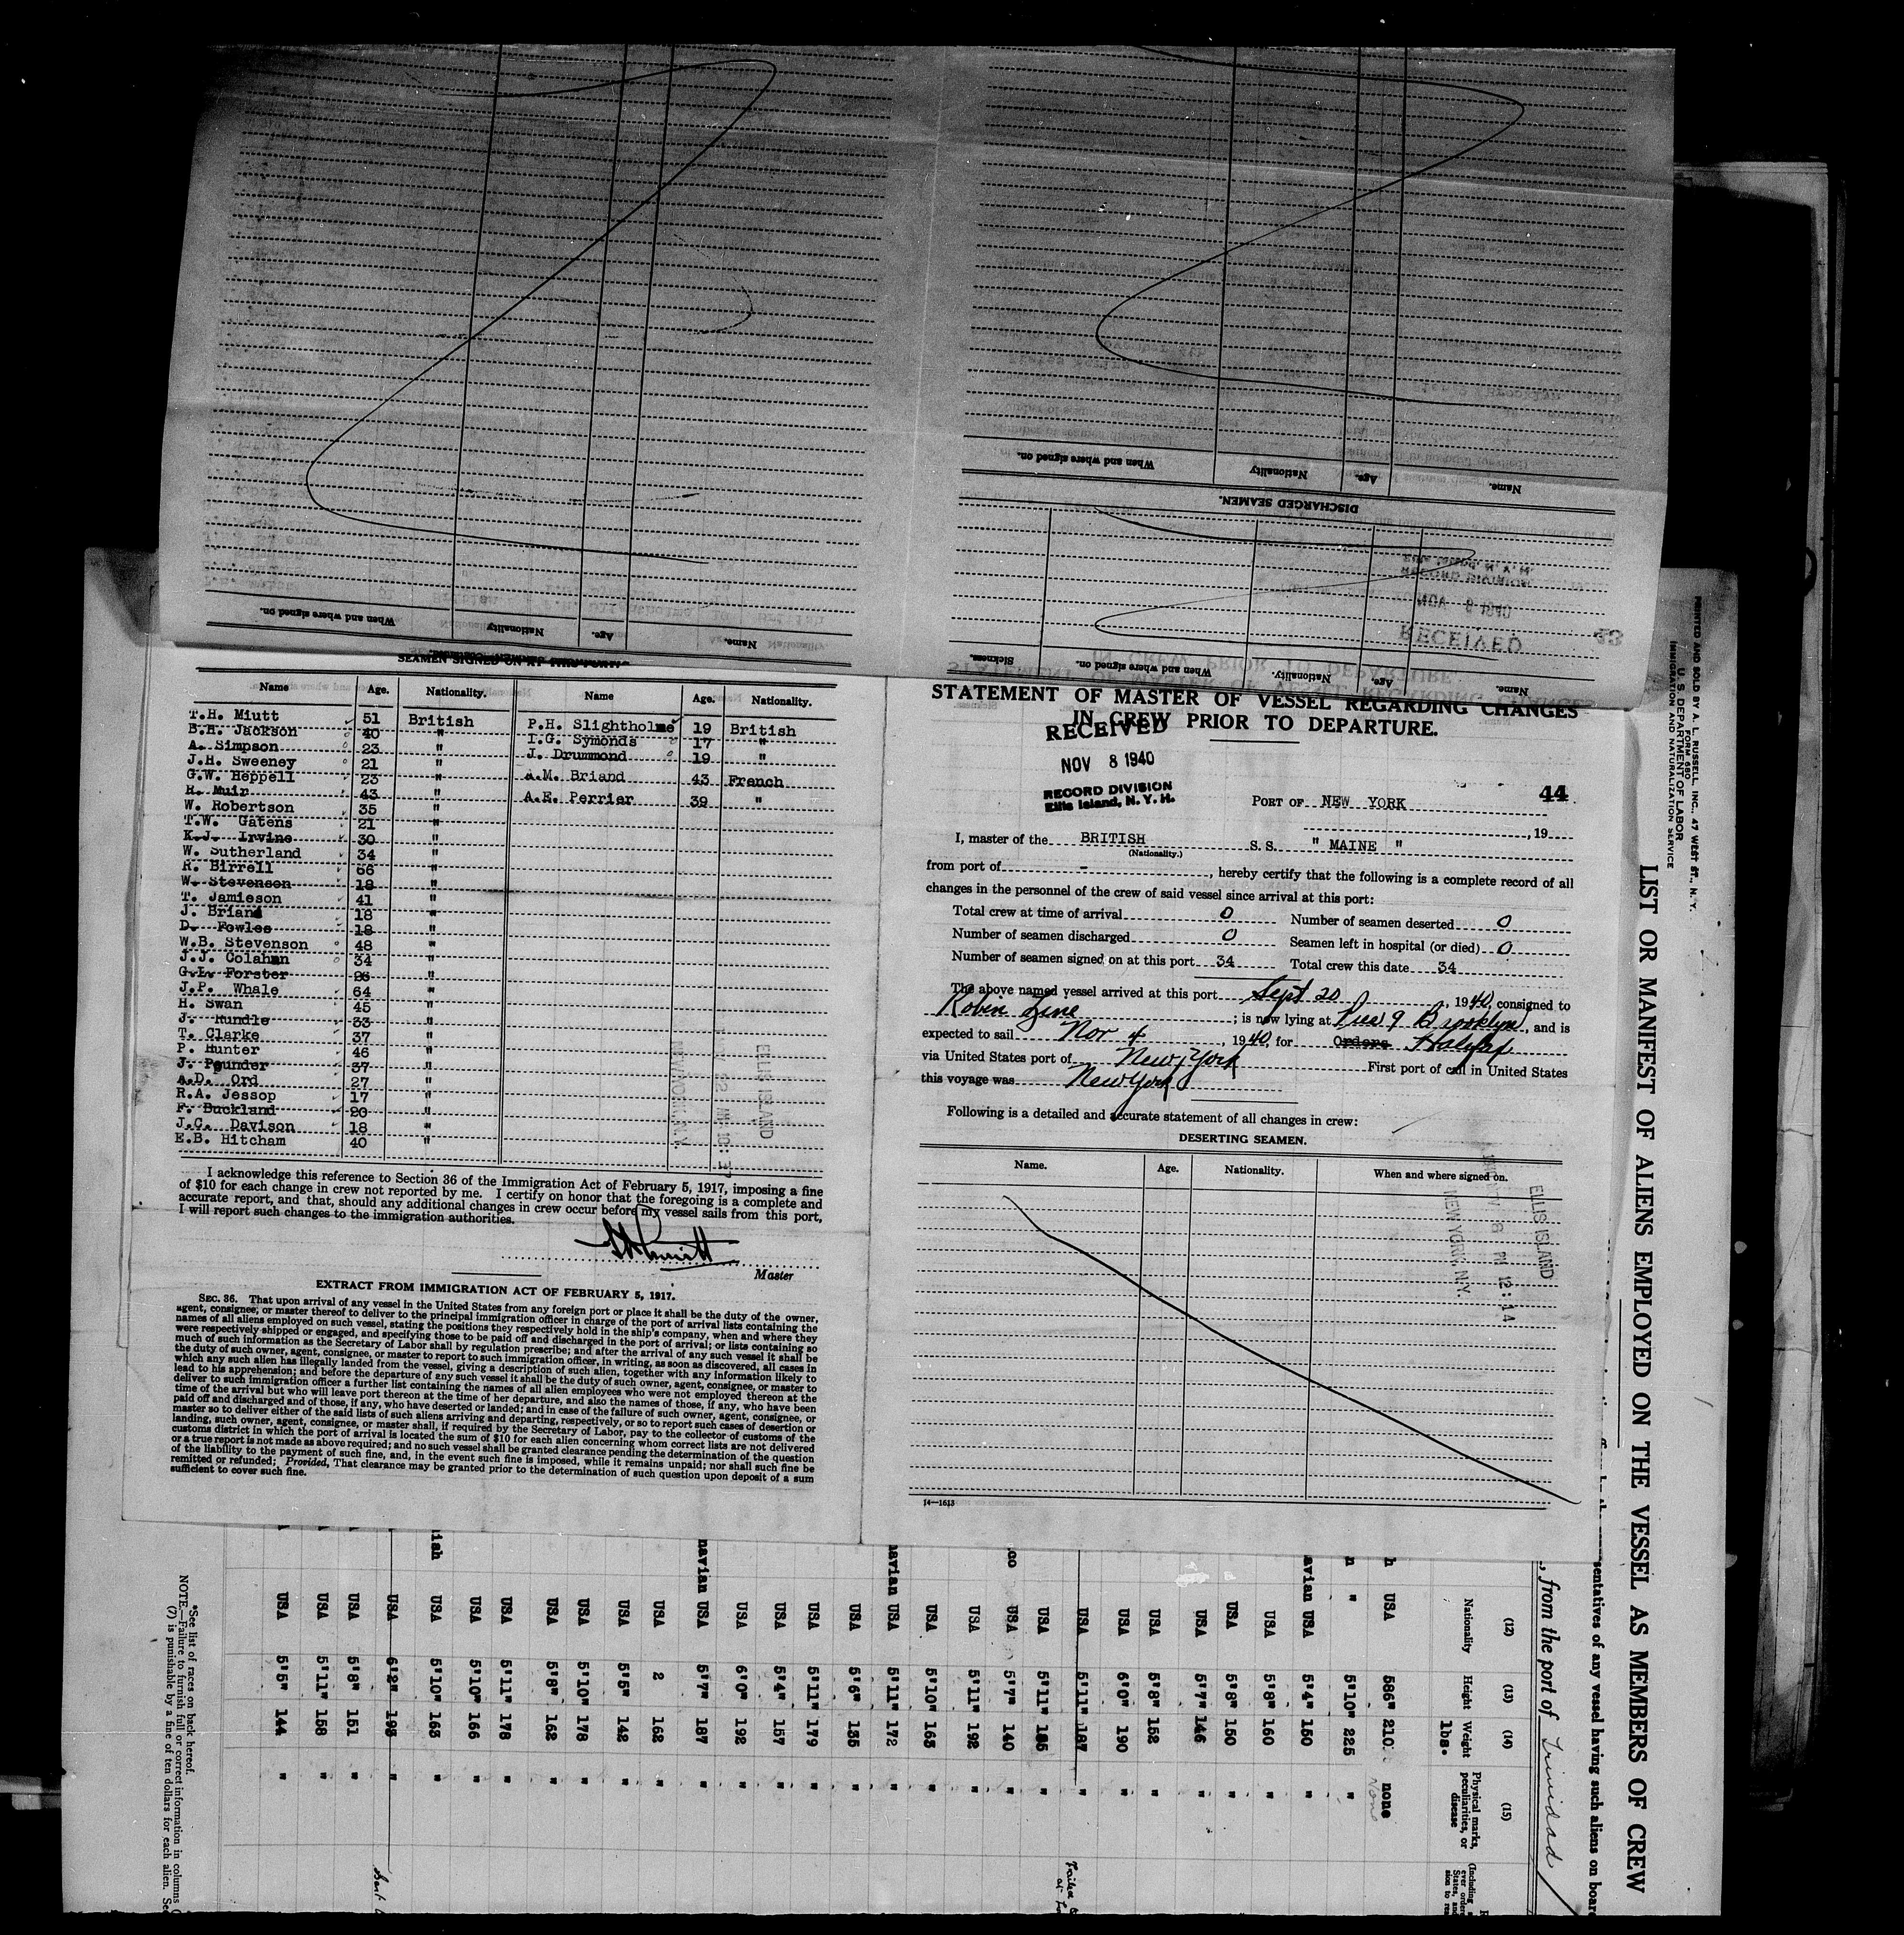 When and where signed on.
Nationality
Age.
Name.
When and where signed on.
Nationality
Age.
Name.
DISCHARGED SEAMEN.
Sickness.
When and where signed on.
Nationality.
Age.
Name.
Name
Age.
Nationality.
Name
Age.
Nationality.
T.H. Miutt 51 British
B.H. Jackson 40 "
A. Simpson 23 "
J.H. Sweeney 21 "
G.W. Heppell 23 "
R. Muir 43 "
W. Robertson 35 "
T.W. Gatens 21 "
K.J. Irvine 30 "
W. Sutherland 34 "
R. Birrell 66 "
W. Stevenson 18 "
T. Jamieson 41 "
J. Briand 18 "
D. Fowles 18 "
W.B. Stevenson 48 "
J.J. Colahan 34 "
G.L. Forster 26 "
J.P. Whale 64 "
H. Swan 45 "
J. Rundle 33 "
T. Clarke 37 "
P. Hunter 46 "
J. Pounder 37 "
A.D. Ord 27 "
R.A. Jessop 17 "
F. Buckland 20 "
J.C. Davison 18 "
E.B. Hitcham 40 "
P.H. Slightholme 19 British
I.G. Symonds 17 "
J. Drummond 19 "
A.M. Briand 43 French
A.E. Perrier 39 "
I acknowledge this reference to Section 36 of the Immigration Act of February 5, 1917, imposing a fine
of $10 for each change in crew not reported by me. I certify on honor that the foregoing is a complete and
accurate report, and that, should any additional changes in crew occur before my vessel sails from this port,
I will report such changes to the immigration authorities.
Master
EXTRACT FROM IMMIGRATION ACT OF FEBRUARY 5, 1917.
SEC. 36. That upon arrival of any vessel in the United States from any foreign port or place it shall be the duty of the owner,
agent, consignee, or master thereof to deliver to the principal immigration officer in charge of the port of arrival lists containing the
names of all aliens employed on such vessel, stating the positions they respectively hold in the ship's company, when and where they
were respectively shipped or engaged, and specifying those to be paid off and discharged in the port of arrival; or lists containing so
much of such information as the Secretary of Labor shall by regulation prescribe; and after the arrival of any such vessel it shall be
the duty of such owner, agent, consignee, or master to report to such immigration officer, in writing, as soon as discovered, all cases in
which any such alien has illegally landed from the vessel, giving a description of such alien, together with any information likely to
lead to his apprehension; and before the departure of any such vessel it shall be the duty of such owner, agent, consignee, or master to
deliver to such immigration officer a further list containing the names of all alien employees who were not employed thereon at the
time of the arrival but who will leave port thereon at the time of her departure, and also the names of those, if any, who have been
paid off and discharged and of those, if any, who have deserted or landed; and in case of the failure of such owner, agent, consignee, or
master so to deliver either of the said lists of such aliens arriving and departing, respectively, or so to report such cases of desertion or
landing, such owner, agent, consignee, or master shall, if required by the Secretary of Labor, pay to the collector of customs of the
customs district in which the port of arrival is located the sum of $10 for each alien concerning whom correct lists are not delivered
or a true report is not made as above required; and no such vessel shall be granted clearance pending the determination of the question
of the liability to the payment of such fine, and, in the event such fine is imposed, while it remains unpaid; nor shall such fine be
remitted or refunded; Provided, That clearance may be granted prior to the determination of such question upon deposit of a sum
sufficient to cover such fine.
STATEMENT OF MASTER OF VESSEL REGARDING CHANGES
IN CREW PRIOR TO DEPARTURE.
RECEIVED
NOV 8 1940
RECORD DIVISION
Ellis Island, N. Y. H.
44
PORT OF NEW YORK
, 19
I, master of the BRITISH S. S. " MAINE "
(Nationality.)
from port of - , hereby certify that the following is a complete record of all
changes in the personnel of the crew of said vessel since arrival at this port:
Total crew at time of arrival 0 Number of seamen deserted 0
Number of seamen discharged 0 Seamen left in hospital (or died) 0
Number of seamen signed on at this port 34 Total crew this date 34
The above named vessel arrived at this port Sept 20, 1940, consigned to
Robin Line; is now lying at Pier 9 Brooklyn, and is
expected to sail Nov 4, 1940, for Orders Halifax
via United States port of New York First port of call in United States
this voyage was New York
Following is a detailed and accurate statement of all changes in crew:
DESERTING SEAMEN.
Name. Age. Nationality. When and where signed on.
ELLIS ISLAND
NEW YORK, N.Y.
14—1613
PRINTED AND SOLD BY A. L. RUSSELL, INC., 47 WEST ST., N. Y.
FORM 680
U. S. DEPARTMENT OF LABOR
IMMIGRATION AND NATURALIZATION SERVICE
LIST OR MANIFEST OF ALIENS EMPLOYED ON THE VESSEL AS MEMBERS OF CREW
sentatives of any vessel having such aliens on board
, from the port of Trinidad
(12) (13) (14) (15)
Nationality Height Weight Physical marks, peculiarities, or disease
lbs.
USA 586" 210 none
" 5'10" 225 "
avian USA 5'4" 150 "
USA 5'8" 160 "
USA 5'8" 150 "
USA 5'7" 146 "
USA 5'8" 152 "
USA 6'0" 190 "
USA 5'11" 187 "
USA 5'11" 185 "
USA 5'7" 140 "
USA 5'11" 192 "
USA 5'10" 163 "
navian USA 5'11" 172 "
USA 5'6" 135 "
USA 5'11" 179 "
USA 5'4" 157 "
USA 6'0" 192 "
navian USA 5'7" 187 "
USA 2 162 "
USA 5'5" 142 "
USA 5'10" 178 "
USA 5'8" 162 "
USA 5'11" 178 "
USA 5'10" 166 "
ish USA 5'10" 163 "
USA 6'2" 193 "
USA 5'8" 151 "
USA 5'11" 158 "
USA 5'5" 144 "
*See list of races on back hereof.
NOTE.—Failure to furnish full or correct information in columns
(7) is punishable by a fine of ten dollars for each alien. See